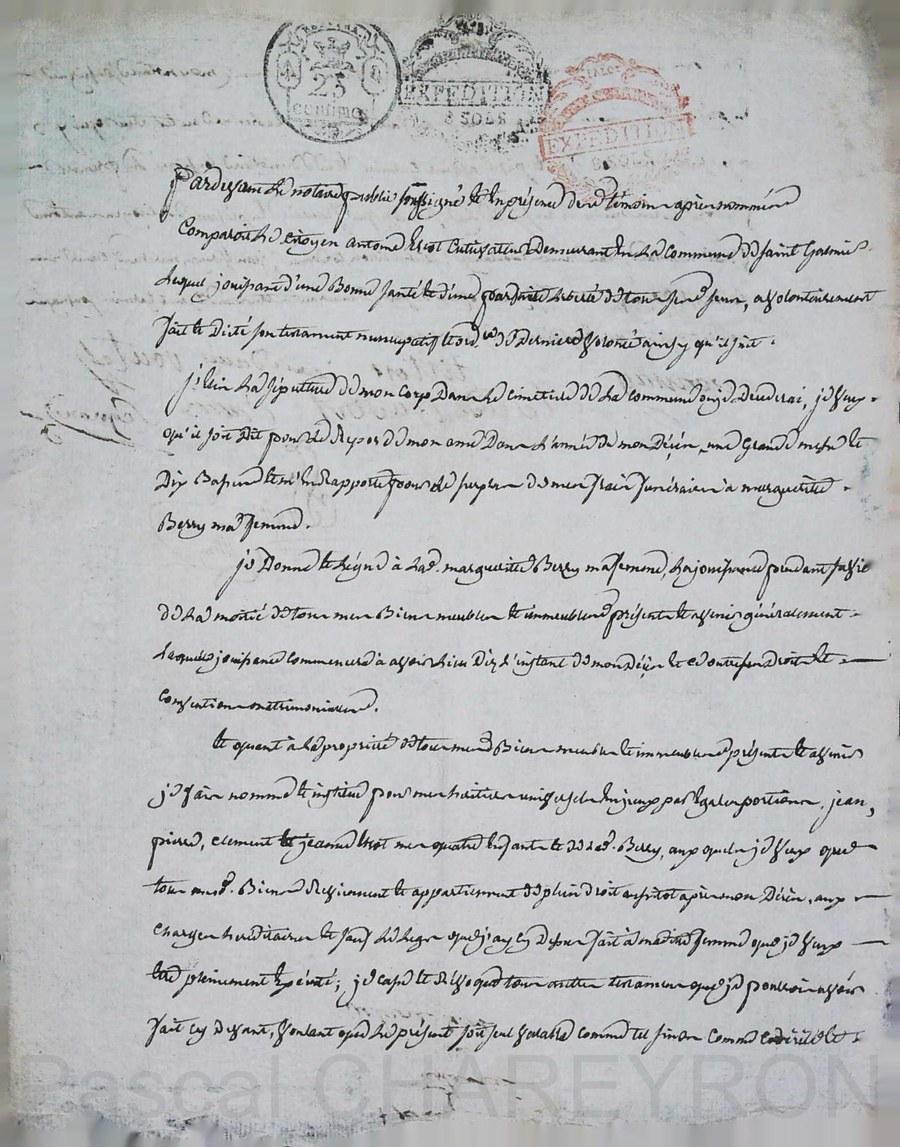 25
centimes
EXPEDITION
8 SOLS
EXPEDITION
Pardevant le notaire public soussigné et en présence des témoins après nommés
Comparoit le citoyen antoine cultivateur demeurant en la commune de saint Galmier
lequel jouissant d'une bonne santé et d'une parfaite liberté de tous ses sens, a volontairement
fait et dicté son testament nuncupatif et ord.re de derniere volonté ainsy qu'il suit.
j'elis la sépulture de mon corps dans le cimetiere de la commune ou je décederai, je veux
qu'il soit dit pour le repos de mon ame dans l'année de mon décès, une grande messe et
dix basses et m'en rapporte pour le surplus de mes frais funéraires à marguerite
Berry ma femme.
je donne et légue à lad. marguerite Berry ma femme, la jouissance pendant sa vie
de la moitié de tous mes biens meubles et immeubles présents et avenir généralement
laquelle jouissance commencera à avoir lieu dez l'instant de mon décès et ce outre ses droits et
conventions matrimoniaux.
et quant à la propriété de tous mesd. biens meubles et immeubles présents et avenir
je fais nomme et institue pour mes héritiers universels en jeux par égales portions, jean,
pierre, clement et jeanne mes quatre enfants et de lad. Berry, auxquels je veux que
tous mesd. biens reviennent et appartiennent de plein droit aussitot après mon décès, aux
charges hereditaires et sauf le legs que j'ay cy dessus fait à madite femme que je veux
etre pleinement exécuté; je casse et révoque tous autres testaments que je pourrois avoir
fait cy devant, voulant que le présent soit seul valable comme tel sinon comme codicille et
Pascal CHAREYRON